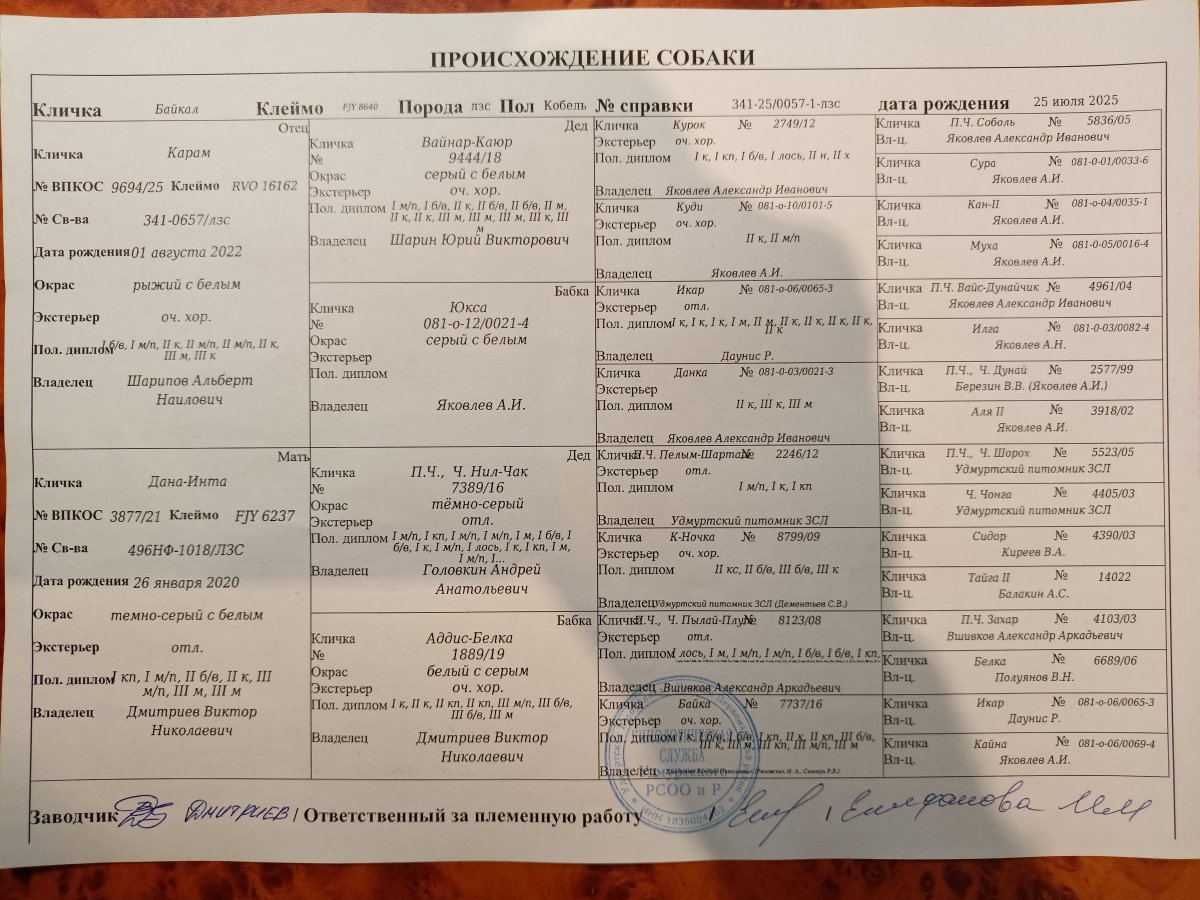 ПРОИСХОЖДЕНИЕ СОБАКИ
Кличка Байкал Клеймо FJY 8640 Порода лзс Пол Кобель № справки 341-25/0057-1-лзс дата рождения 25 июля 2025
Отец
Кличка Карам
№ ВПКОС 9694/25 Клеймо RVO 16162
№ Св-ва 341-0657/лзс
Дата рождения 01 августа 2022
Окрас рыжий с белым
Экстерьер оч. хор.
Пол. диплом I б/в, I м/п, II к, II м/п, II м/п, II к,
III м, III к
Владелец Шарипов Альберт
Наилович
Мать
Кличка Дана-Инта
№ ВПКОС 3877/21 Клеймо FJY 6237
№ Св-ва 496НФ-1018/ЛЗС
Дата рождения 26 января 2020
Окрас темно-серый с белым
Экстерьер отл.
Пол. диплом I кп, I м/п, II б/в, II к, III
м/п, III м, III м
Владелец Дмитриев Виктор
Николаевич
Дед
Кличка Вайнар-Каюр
№ 9444/18
Окрас серый с белым
Экстерьер оч. хор.
Пол. диплом I м/п, I б/в, II к, II б/в, II б/в, II м,
II к, II к, III м, III м, III м, III к, III
м
Владелец Шарин Юрий Викторович
Бабка
Кличка Юкса
№ 081-о-12/0021-4
Окрас серый с белым
Экстерьер
Пол. диплом
Владелец Яковлев А.И.
Дед
Кличка П.Ч., Ч. Нил-Чак
№ 7389/16
Окрас тёмно-серый
Экстерьер отл.
Пол. диплом I м/п, I кп, I м/п, I м/п, I м, I б/в, I
б/в, I к, I м/п, I лось, I к, I кп, I м,
I м/п, I...
Владелец Головкин Андрей
Анатольевич
Бабка
Кличка Аддис-Белка
№ 1889/19
Окрас белый с серым
Экстерьер оч. хор.
Пол. диплом I к, II к, II кп, II кп, III м/п, III б/в,
III б/в, III м
Владелец Дмитриев Виктор
Николаевич
Кличка Курок № 2749/12
Экстерьер оч. хор.
Пол. диплом I к, I кп, I б/в, I лось, II н, II х
Владелец Яковлев Александр Иванович
Кличка Куди № 081-о-10/0101-5
Экстерьер оч. хор.
Пол. диплом II к, II м/п
Владелец Яковлев А.И.
Кличка Икар № 081-о-06/0065-3
Экстерьер отл.
Пол. диплом I к, I к, I к, I м, II м, II к, II к, II к, II к,
II к
Владелец Даунис Р.
Кличка Данка № 081-0-03/0021-3
Экстерьер
Пол. диплом II к, III к, III м
Владелец Яковлев Александр Иванович
Кличка П.Ч. Пелым-Шартан № 2246/12
Экстерьер отл.
Пол. диплом I м/п, I к, I кп
Владелец Удмуртский питомник ЗСЛ
Кличка К-Ночка № 8799/09
Экстерьер оч. хор.
Пол. диплом II кс, II б/в, III б/в, III к
Владелец Удмуртский питомник ЗСЛ (Дементьев С.В.)
Кличка П.Ч., Ч. Пылай-Плун № 8123/08
Экстерьер отл.
Пол. диплом I лось, I м, I м/п, I м/п, I б/в, I б/в, I кп,
Владелец Вшивков Александр Аркадьевич
Кличка Байка № 7737/16
Экстерьер оч. хор.
Пол. диплом I к, I б/в, I б/в, I кп, II к, II кп, III б/в,
III к, III м, III кп, III м/п, III м
Владелец Дмитриев Виктор Николаевич
Кличка П.Ч. Соболь № 5836/05
Вл-ц. Яковлев Александр Иванович
Кличка Сура № 081-0-01/0033-6
Вл-ц. Яковлев А.И.
Кличка Кан-II № 081-о-04/0035-1
Вл-ц. Яковлев А.И.
Кличка Муха № 081-0-05/0016-4
Вл-ц. Яковлев А.И.
Кличка П.Ч. Вайс-Дунайчик № 4961/04
Вл-ц. Яковлев Александр Иванович
Кличка Илга № 081-0-03/0082-4
Вл-ц. Яковлев А.Н.
Кличка П.Ч., Ч. Дунай № 2577/99
Вл-ц. Березин В.В. (Яковлев А.И.)
Кличка Аля II № 3918/02
Вл-ц. Яковлев А.И.
Кличка П.Ч., Ч. Шорох № 5523/05
Вл-ц. Удмуртский питомник ЗСЛ
Кличка Ч. Чонга № 4405/03
Вл-ц. Удмуртский питомник ЗСЛ
Кличка Сидор № 4390/03
Вл-ц. Киреев В.А.
Кличка Тайга II № 14022
Вл-ц. Балакин А.С.
Кличка П.Ч. Захар № 4103/03
Вл-ц. Вшивков Александр Аркадьевич
Кличка Белка № 6689/06
Вл-ц. Полуянов В.Н.
Кличка Икар № 081-о-06/0065-3
Вл-ц. Даунис Р.
Кличка Кайна № 081-о-06/0069-4
Вл-ц. Яковлев А.И.
КИНОЛОГИЧЕСКАЯ
СЛУЖБА
РСОО и Р
Заводчик ДМИТРИЕВ / Ответственный за племенную работу / /